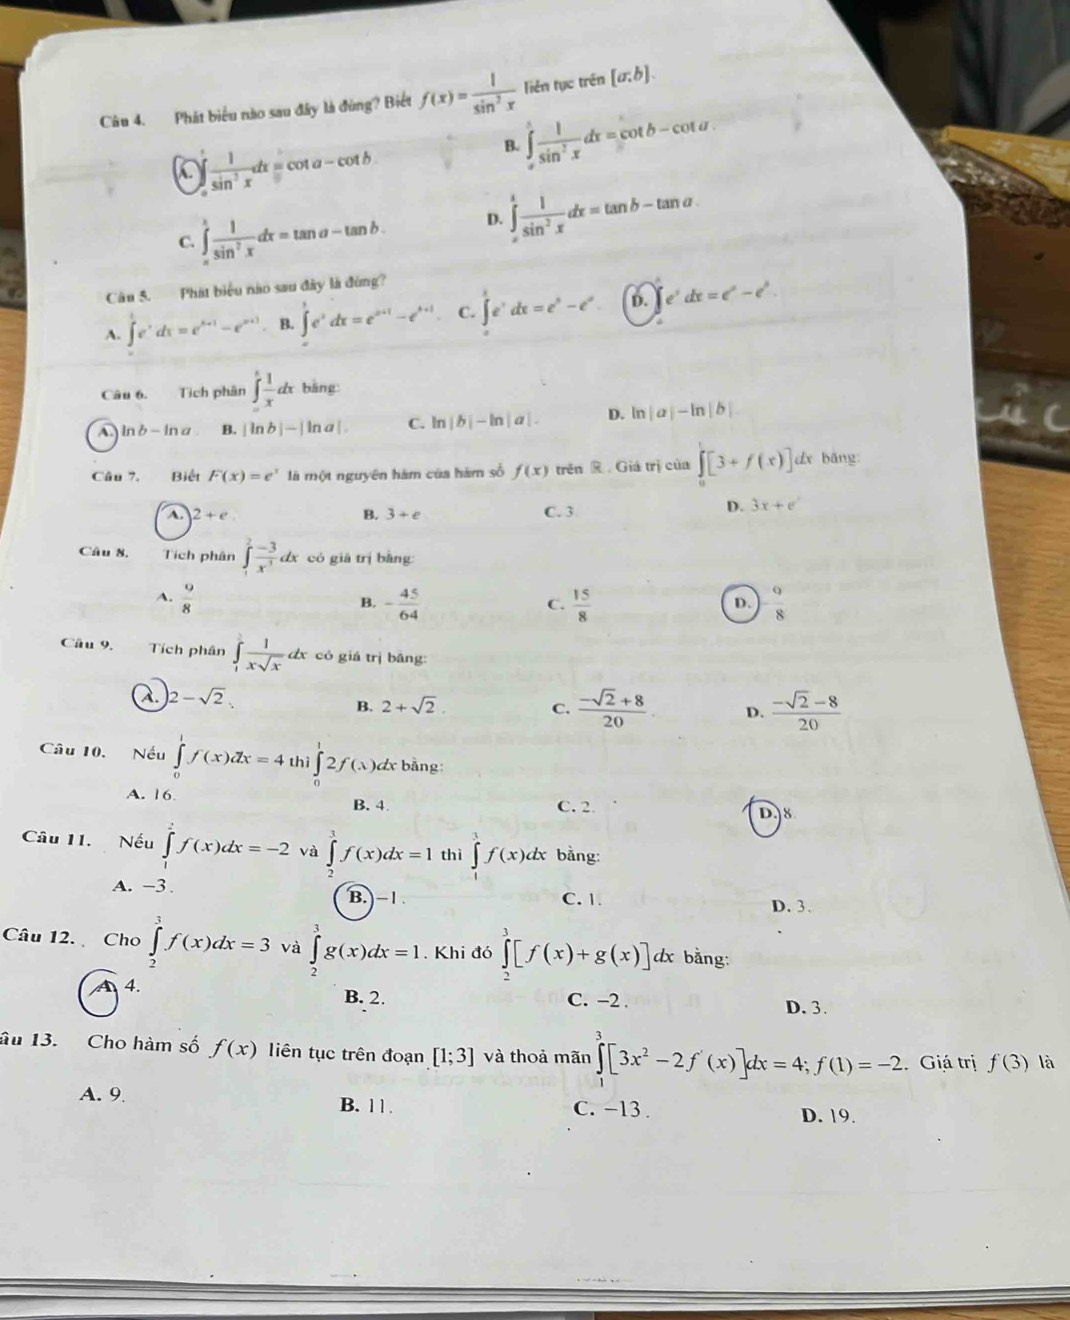 Câu 4. Phát biểu nào sau đây là đúng? Biết f(x) = \frac{1}{\sin^2 x} liên tục trên [a;b].
A. \int_a^b \frac{1}{\sin^2 x} dx = cot a - cot b. B. \int_a^b \frac{1}{\sin^2 x} dx = cot b - cot a.
C. \int_a^b \frac{1}{\sin^2 x} dx = tan a - tan b. D. \int_a^b \frac{1}{\sin^2 x} dx = tan b - tan a.
Câu 5. Phát biểu nào sau đây là đúng?
A. \int_a^b e^x dx = e^{b+1} - e^{a+1}. B. \int_a^b e^x dx = e^{a+1} - e^{b+1}. C. \int_a^b e^x dx = e^b - e^a. D. \int_a^b e^x dx = e^a - e^b.
Câu 6. Tích phân \int_a^b \frac{1}{x} dx bằng:
A. ln b - ln a. B. |ln b| - |ln a|. C. ln|b| - ln|a|. D. ln|a| - ln|b|.
Câu 7. Biết F(x) = e^x là một nguyên hàm của hàm số f(x) trên ℝ. Giá trị của \int_0^1 [3 + f(x)] dx bằng:
A. 2 + e. B. 3 + e C. 3. D. 3x + e^x
Câu 8. Tích phân \int_1^2 \frac{-3}{x^3} dx có giá trị bằng:
A. \frac{9}{8} B. -\frac{45}{64} C. \frac{15}{8} D. -\frac{9}{8}
Câu 9. Tích phân \int_1^2 \frac{1}{x\sqrt{x}} dx có giá trị bằng:
A. 2 - \sqrt{2}. B. 2 + \sqrt{2}. C. \frac{-\sqrt{2}+8}{20}. D. \frac{-\sqrt{2}-8}{20}
Câu 10. Nếu \int_0^1 f(x)dx = 4 thì \int_0^1 2f(x)dx bằng:
A. 16. B. 4. C. 2. D. 8.
Câu 11. Nếu \int_1^2 f(x)dx = -2 và \int_2^3 f(x)dx = 1 thì \int_1^3 f(x)dx bằng:
A. -3. B. -1. C. 1. D. 3.
Câu 12. Cho \int_2^3 f(x)dx = 3 và \int_2^3 g(x)dx = 1. Khi đó \int_2^3 [f(x) + g(x)] dx bằng:
A. 4. B. 2. C. -2. D. 3.
âu 13. Cho hàm số f(x) liên tục trên đoạn [1;3] và thoả mãn \int_1^3 [3x^2 - 2f'(x)] dx = 4; f(1) = -2. Giá trị f(3) là
A. 9. B. 11. C. -13. D. 19.